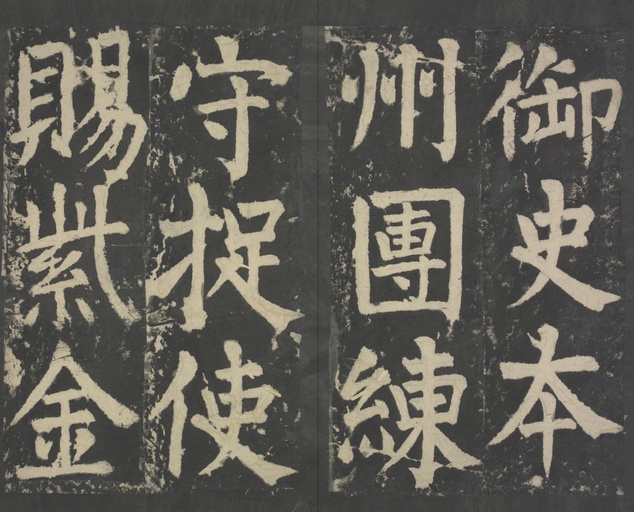 御史本
州團練
守捉使
賜紫金